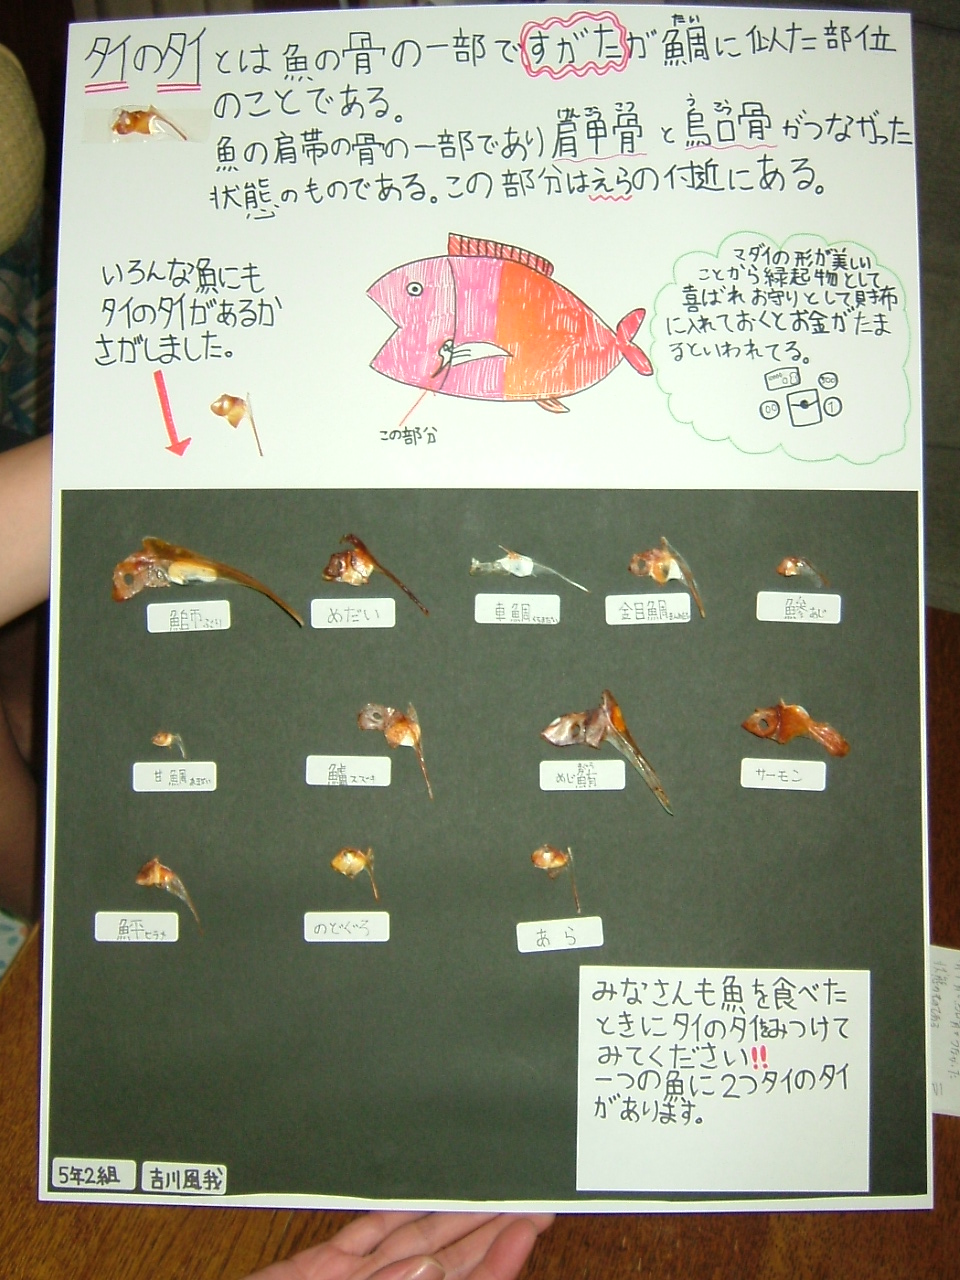 タイのタイとは魚の骨の一部ですがたが鯛に似た部位
たい
のことである。
魚の肩帯の骨の一部であり肩甲骨と烏口骨がつながった
状態のものである。この部分はえらの付近にある。
いろんな魚にも
タイのタイがあるか
さがしました。
この部分
マダイの形が美しい
ことから縁起物として
喜ばれお守りとして財布
に入れておくとお金がたま
るといわれてる。
100
500
1
めだい
車鯛
金目鯛
あじ
甘鯛
鱸 スズキ
めじ鮪
サーモン
鮃 ヒラメ
のどぐろ
あら
みなさんも魚を食べた
ときにタイのタイをみつけて
みてください!!
一つの魚に2つタイのタイ
があります。
5年2組
吉川風我